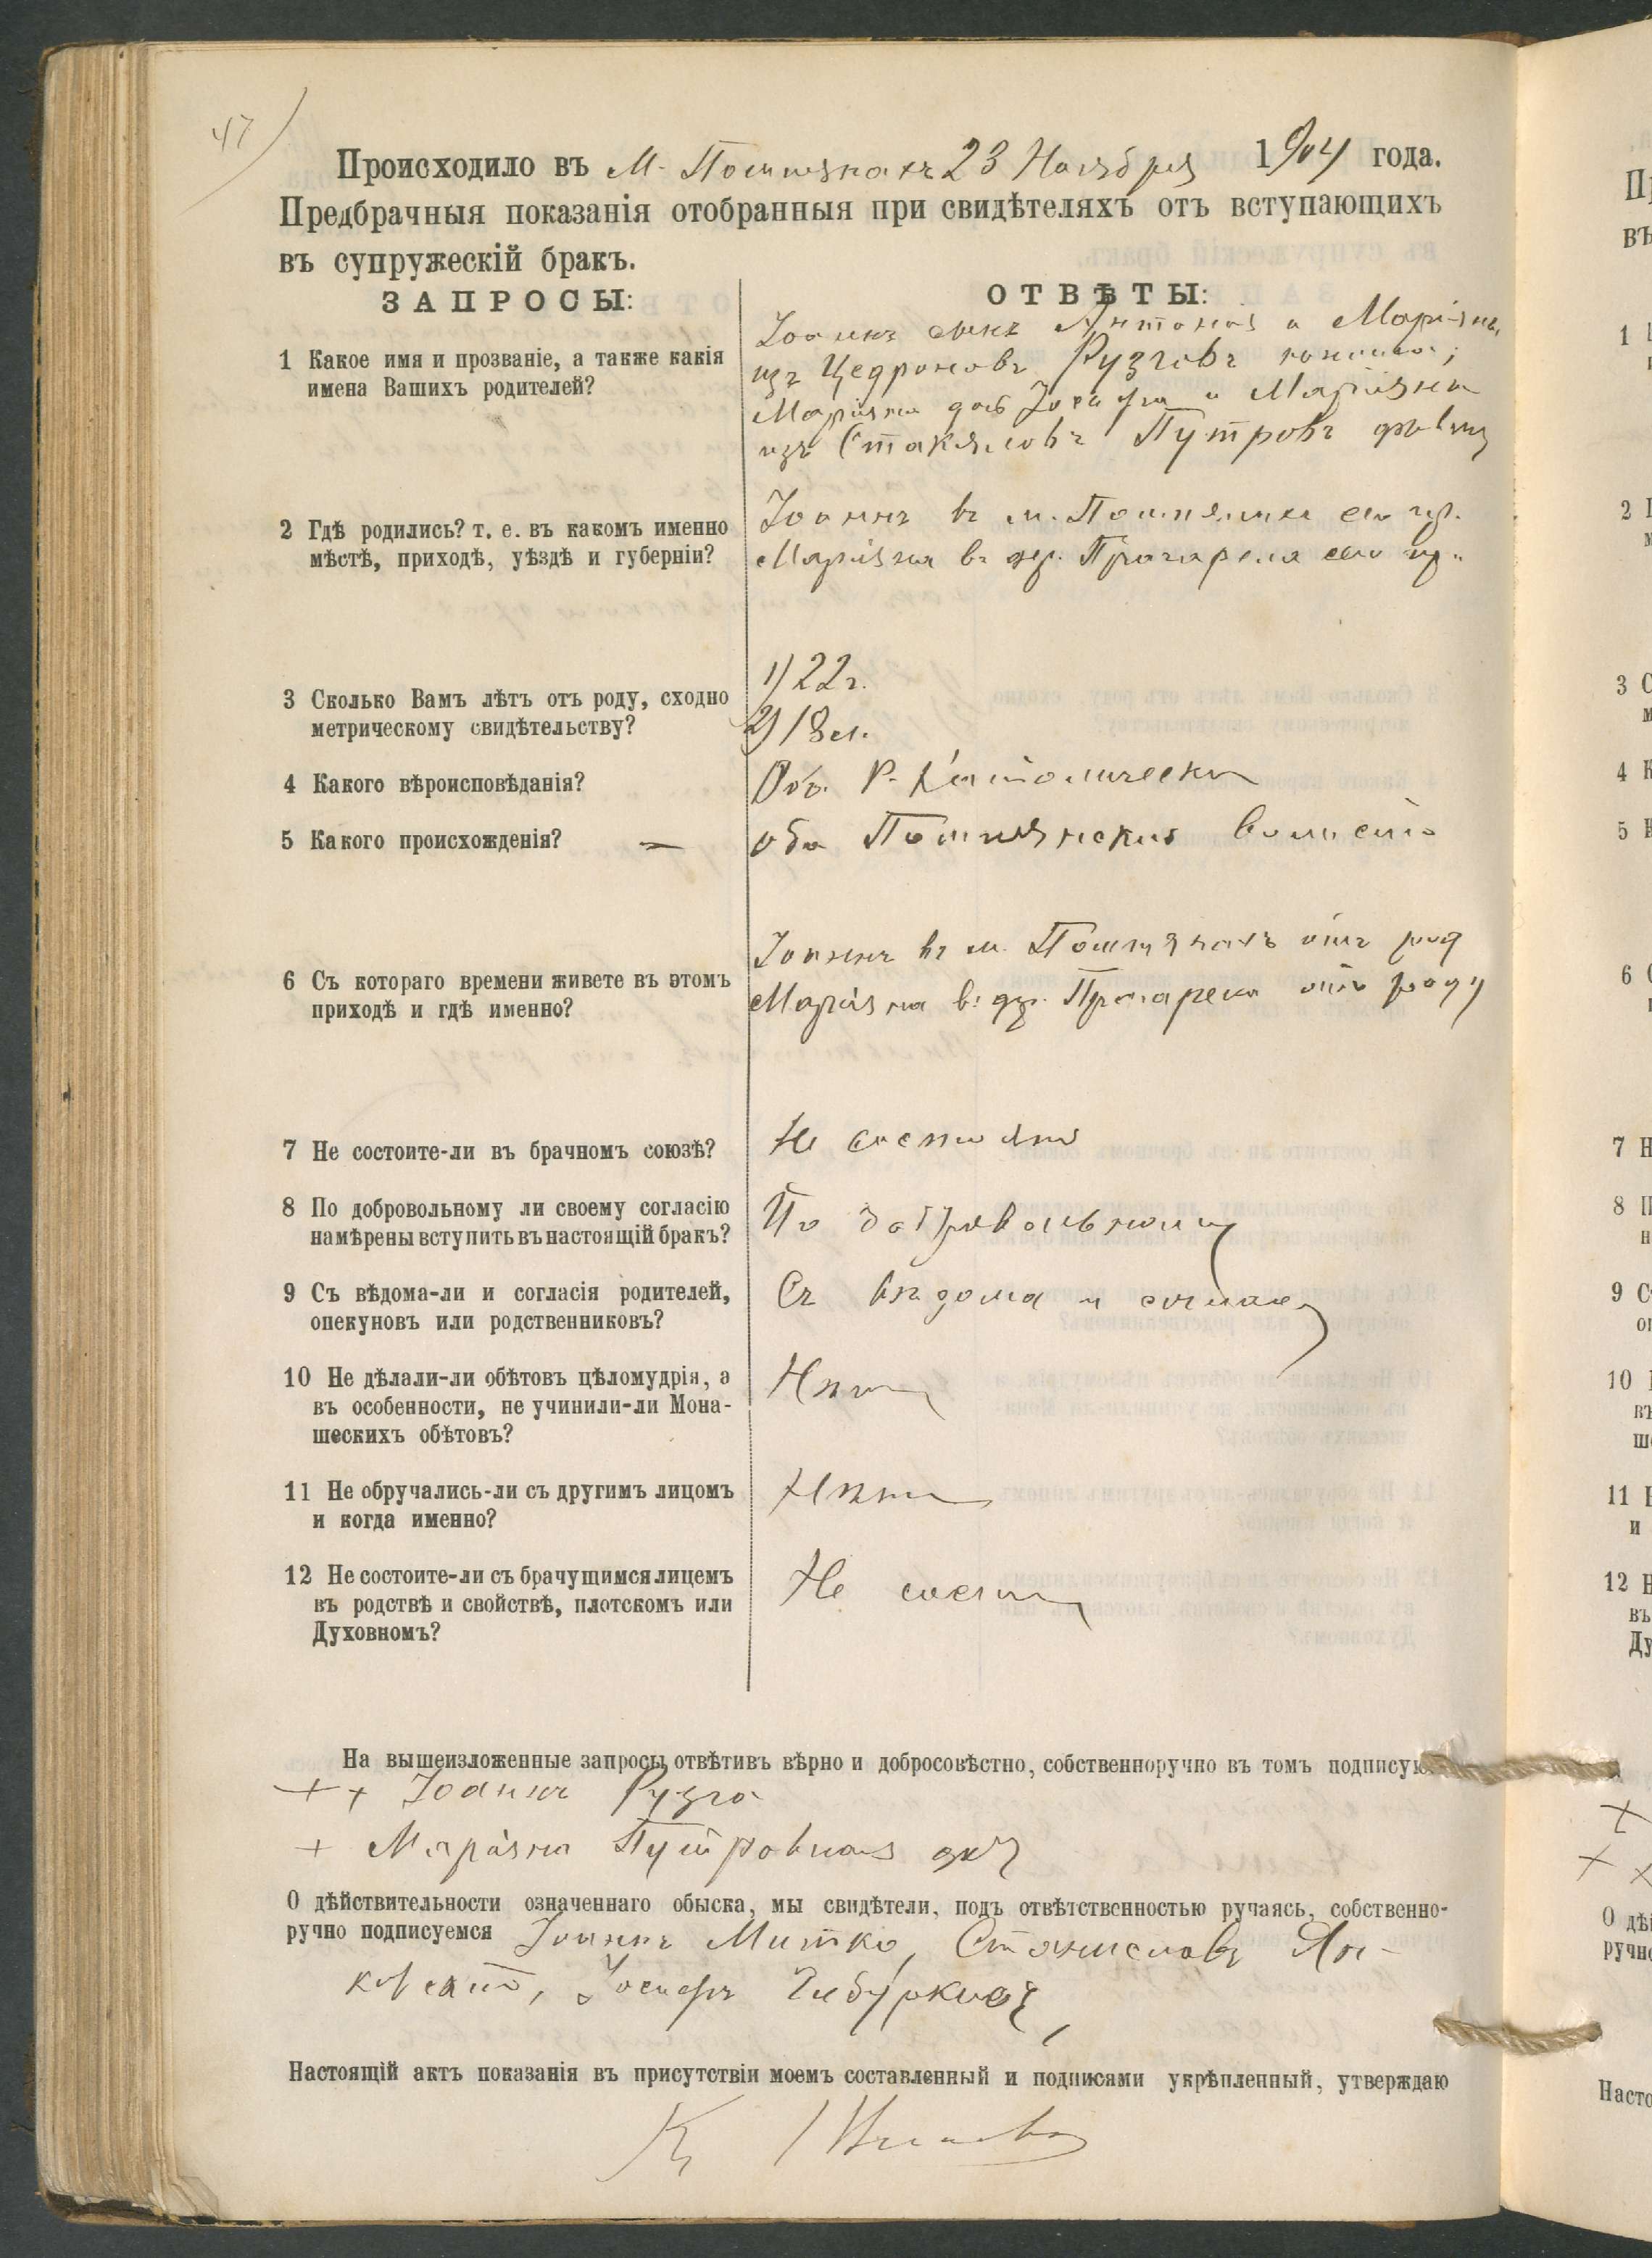 47
Происходило въ М. Пошиянахъ 23 Ноября 1904 года.
Предбрачныя показанія отобранныя при свидѣтеляхъ отъ вступающихъ
въ супружескій бракъ.
ЗАПРОСЫ:
ОТВѢТЫ:
1 Какое имя и прозваніе, а также какія
имена Вашихъ родителей?
Іоаннъ сынъ Антонія и Маріянны
изъ Цедроновъ Рузговъ
Маріянна дочь Іосифа и Маріянны
изъ Путровъ дѣвица
2 Гдѣ родились? т. е. въ какомъ именно
мѣстѣ, приходѣ, уѣздѣ и губерніи?
Іоаннъ въ м.
Маріянна въ дер.
3 Сколько Вамъ лѣтъ отъ роду, сходно
метрическому свидѣтельству?
1) 22 г.
2) 18 л.
4 Какого вѣроисповѣданія?
Оба Р. Католическаго
5 Какого происхожденія? —
оба волости
6 Съ котораго времени живете въ этомъ
приходѣ и гдѣ именно?
Іоаннъ въ м. Пошиянахъ отъ роду
Маріянна въ дер. отъ роду
7 Не состоите-ли въ брачномъ союзѣ?
Не состоятъ
8 По добровольному ли своему согласію
намѣрены вступить въ настоящій бракъ?
По добровольному
9 Съ вѣдома-ли и согласія родителей,
опекуновъ или родственниковъ?
Съ вѣдома и согласія
10 Не дѣлали-ли обѣтовъ цѣломудрія, а
въ особенности, не учинили-ли Мона-
шескихъ обѣтовъ?
Нѣтъ
11 Не обручались-ли съ другимъ лицомъ
и когда именно?
Нѣтъ
12 Не состоите-ли съ брачущимся лицемъ
въ родствѣ и свойствѣ, плотскомъ или
Духовномъ?
Не состоятъ
На вышеизложенные запросы отвѣтивъ вѣрно и добросовѣстно, собственноручно въ томъ подписую
+ + Іоаннъ Рузго
+ Маріянна Путровна
О дѣйствительности означеннаго обыска, мы свидѣтели, подъ отвѣтственностью ручаясь, собственно-
ручно подписуемся Іоаннъ Митко, Станиславъ Ян-
ковскій, Іосифъ
Настоящій актъ показанія въ присутствіи моемъ составленный и подписями укрѣпленный, утверждаю